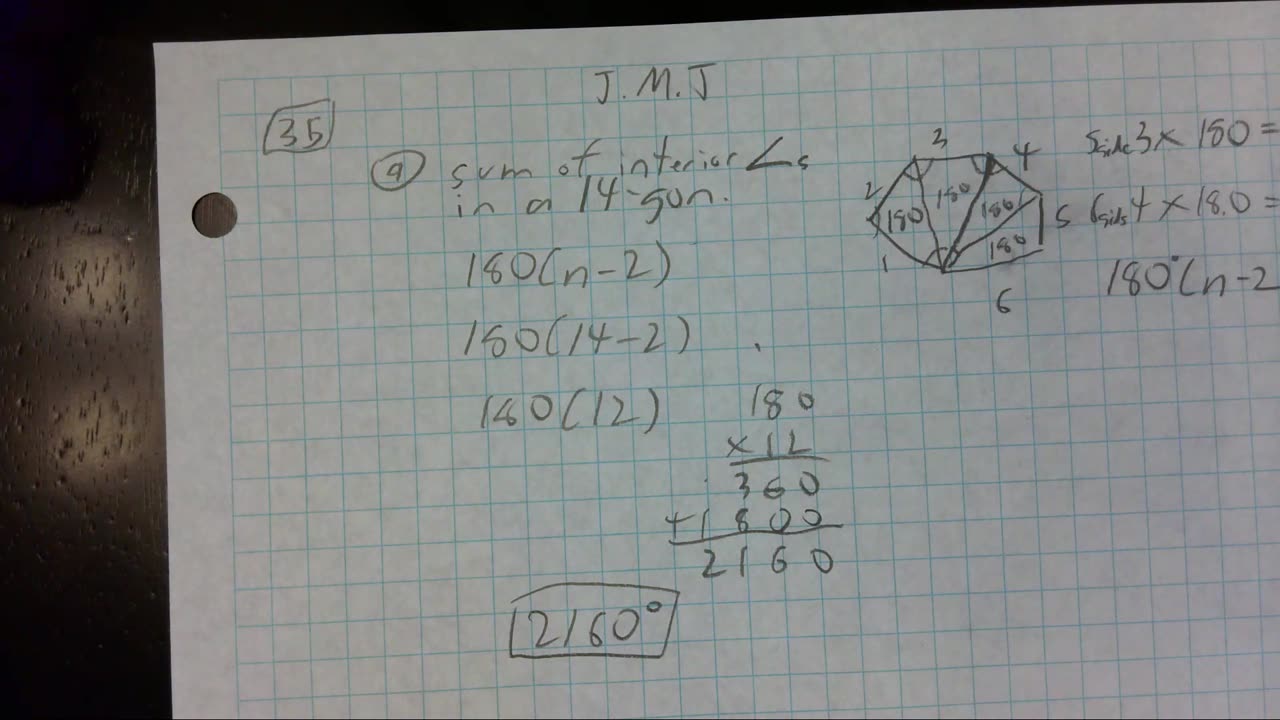 J.M.J
35
a sum of interior ∠s
in a 14-gon.
180(n-2)
180(14-2)
180(12)
180
x12
360
+1800
2160
2160°
3
2
4
180
180
180
180
5
1
6
5 sides 3 x 180 =
6 sides 4 x 180 =
180°(n-2